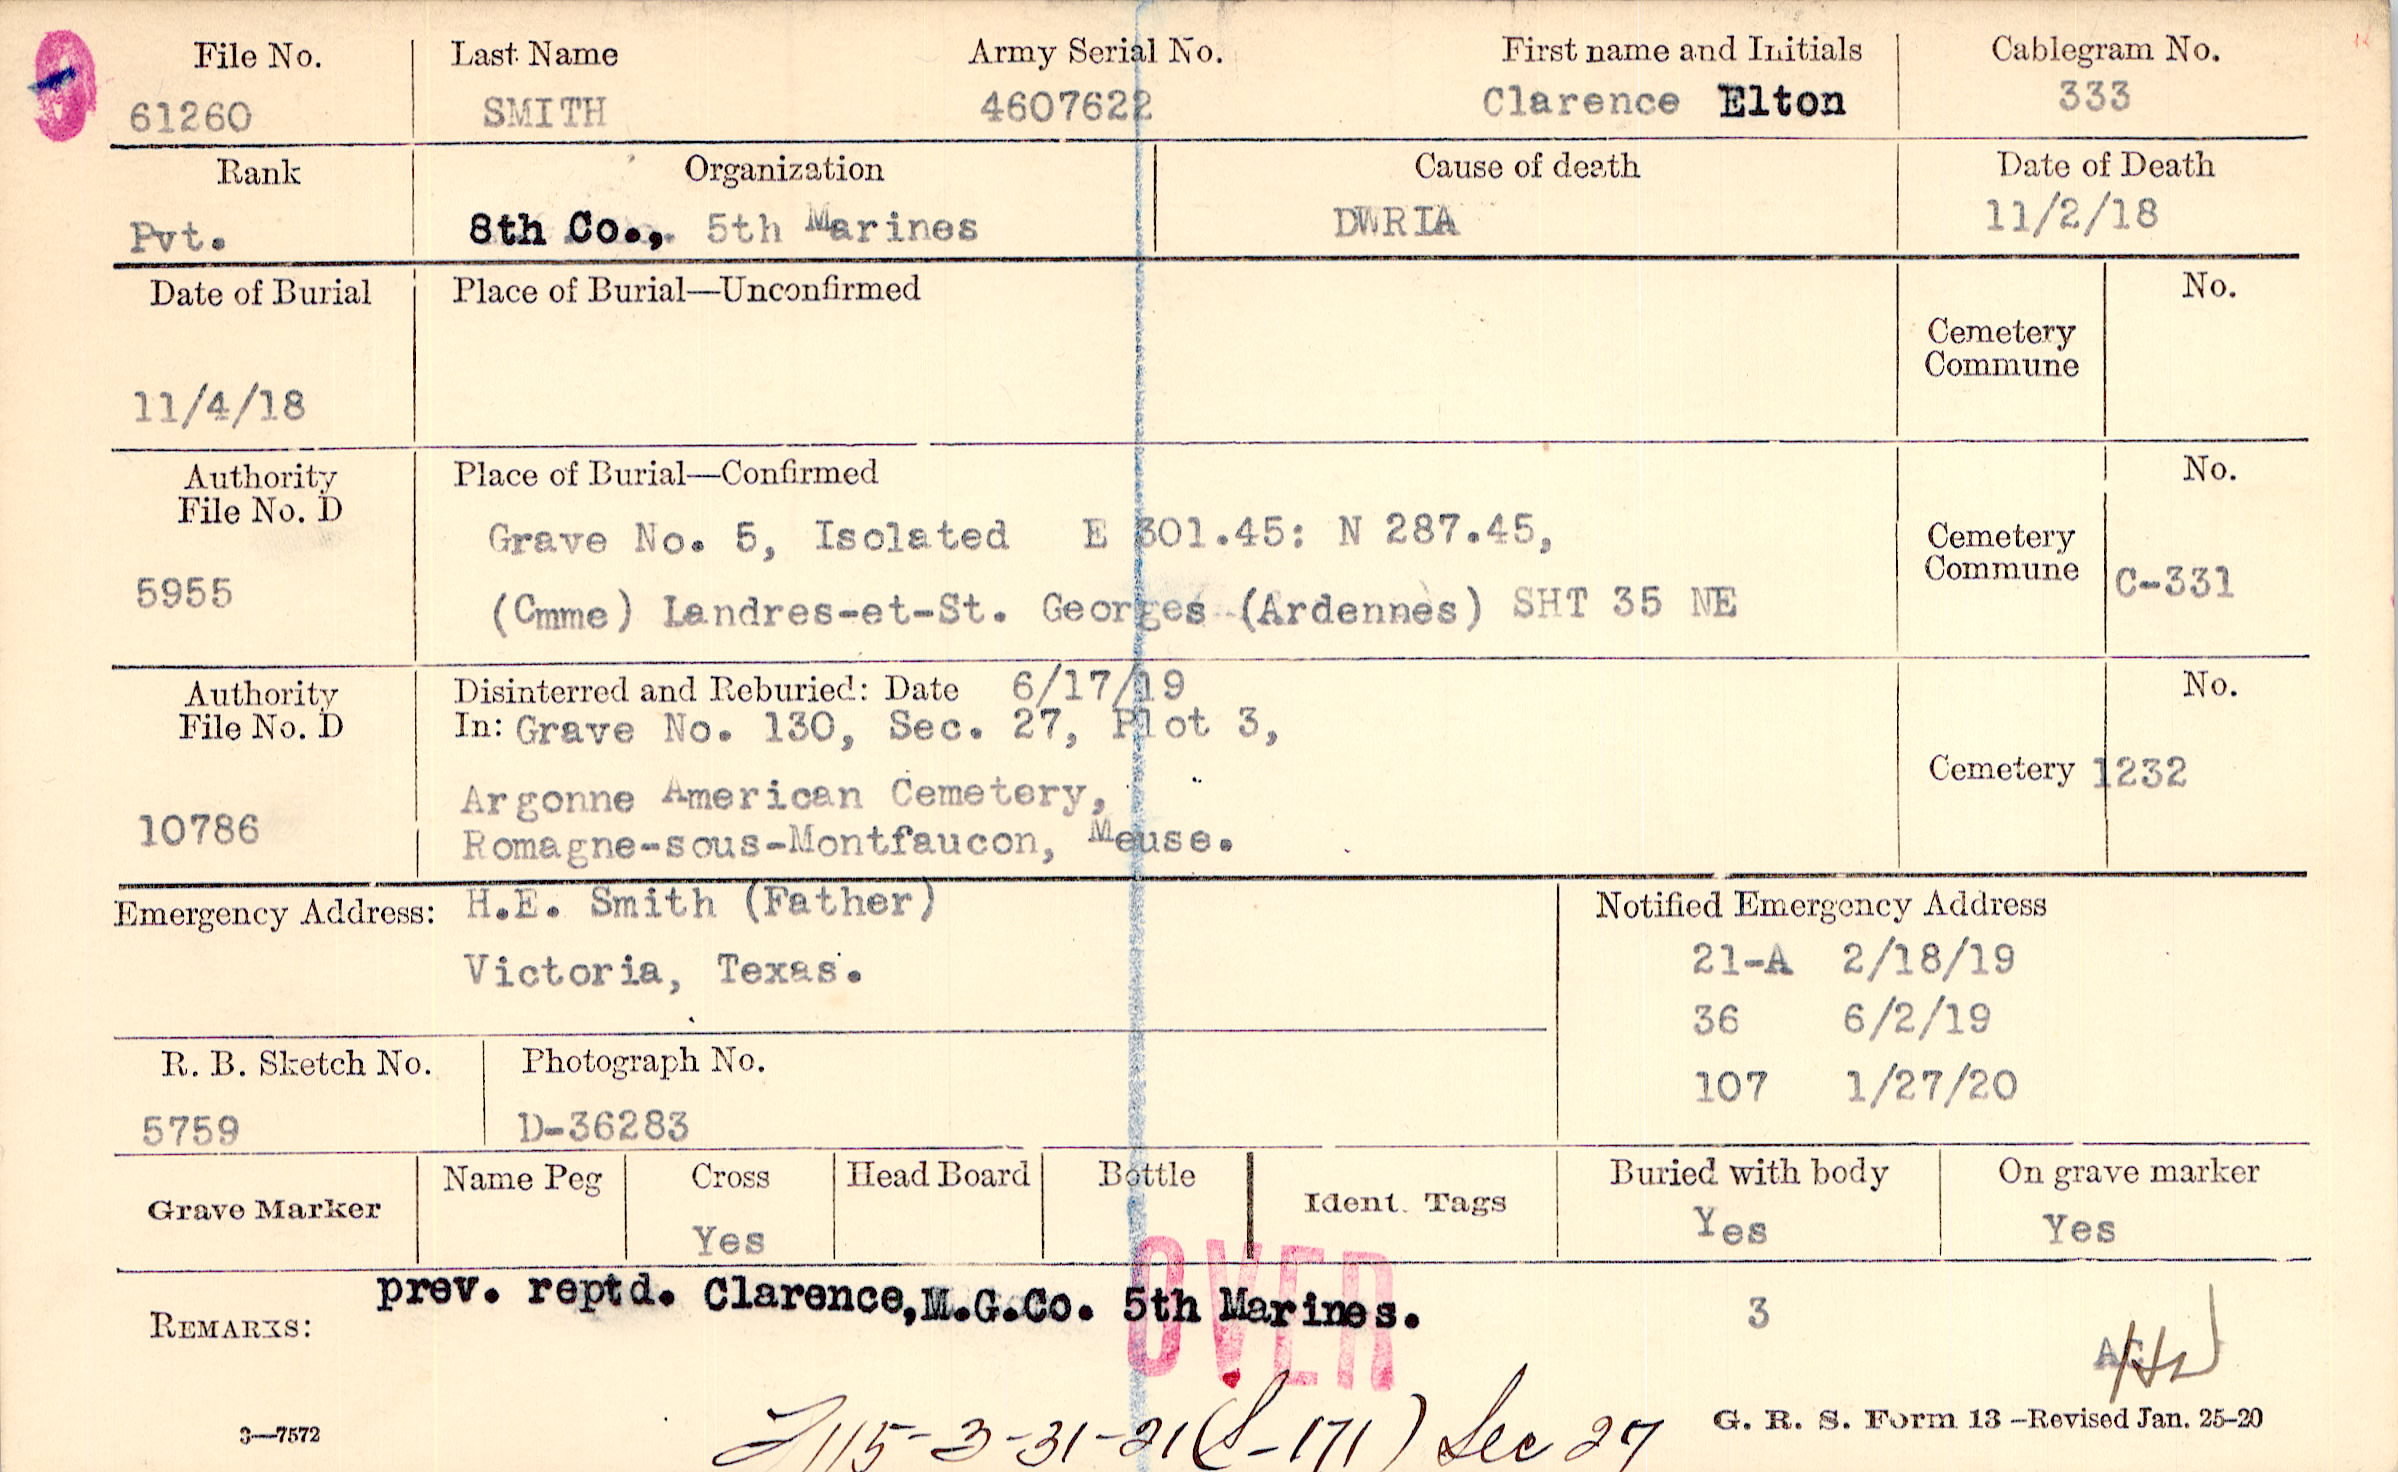 File No. Last Name Army Serial No. First name and Initials Cablegram No.
61260 SMITH 4607622 Clarence Elton 333
Rank Organization Cause of death Date of Death
Pvt. 8th Co., 5th Marines DWRIA 11/2/18
Date of Burial Place of Burial—Unconfirmed No.
Cemetery
Commune
11/4/18
Authority Place of Burial—Confirmed No.
File No. D
Grave No. 5, Isolated E 301.45: N 287.45, Cemetery
5955 Commune C-331
(Cmme) Landres-et-St. Georges (Ardennes) SHT 35 NE
Authority Disinterred and Reburied: Date 6/17/19 No.
File No. D In: Grave No. 130, Sec. 27, Plot 3,
Cemetery 1232
Argonne American Cemetery,
10786 Romagne-sous-Montfaucon, Meuse.
Emergency Address: H.E. Smith (Father) Notified Emergency Address
Victoria, Texas. 21-A 2/18/19
36 6/2/19
R. B. Sketch No. Photograph No. 107 1/27/20
5759 D-36283
Grave Marker Name Peg Cross Head Board Bottle Ident. Tags Buried with body On grave marker
Yes Yes Yes
OVER
REMARKS: prev. reptd. Clarence,M.G.Co. 5th Marines. 3
3—7572 115-3-31-21(S-171) Sec 27 G. R. S. Form 13—Revised Jan. 25-20